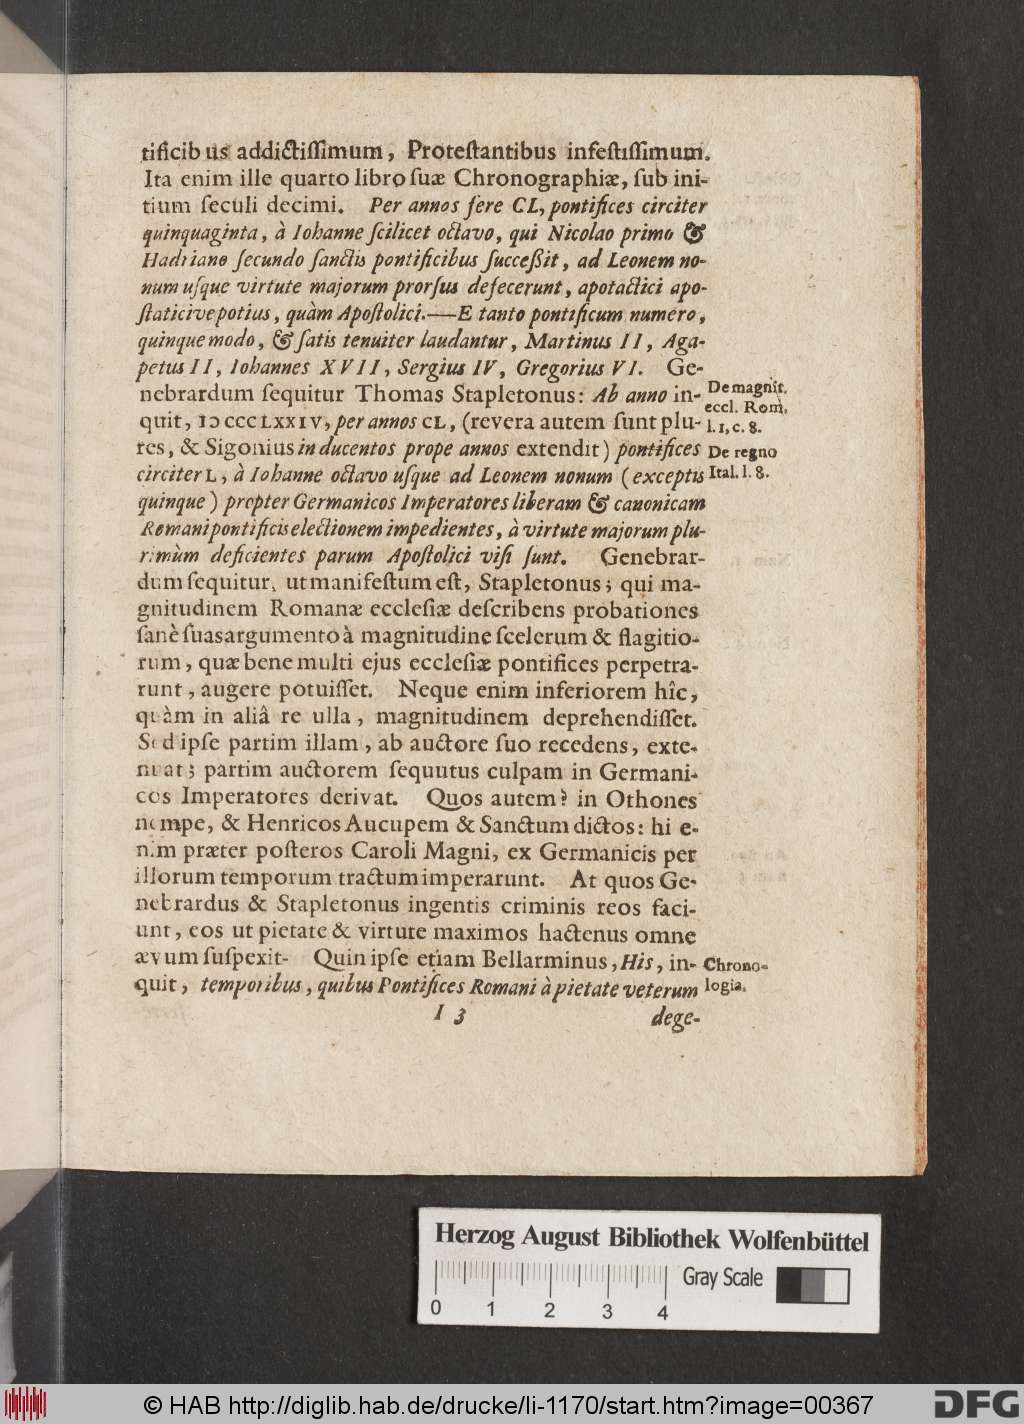 tificibus addictiſſimum, Proteſtantibus infeſtiſſimum.
Ita enim ille quarto libro ſuæ Chronographiæ, ſub ini-
tium ſeculi decimi. Per annos fere CL, pontifices circiter
quinquaginta, à Iohanne ſcilicet octavo, qui Nicolao primo &
Hadriano ſecundo ſanctis pontificibus ſucceßit, ad Leonem no-
num uſque virtute majorum prorſus defecerunt, apotactici apo-
ſtaticive potius, quàm Apoſtolici.—E tanto pontificum numero,
quinque modo, & ſatis tenuiter laudantur, Martinus II, Aga-
petus II, Iohannes XVII, Sergius IV, Gregorius VI. Ge-
nebrardum ſequitur Thomas Stapletonus: Ab anno in-
De magnit.
eccl. Rom.
l. 1, c. 8.
quit, IↃCCCLXXIV, per annos CL, (revera autem ſunt plu-
res, & Sigonius in ducentos prope annos extendit) pontifices
De regno
Ital. l. 8.
circiter L, à Iohanne octavo uſque ad Leonem nonum (exceptis
quinque) propter Germanicos Imperatores liberam & canonicam
Romani pontificis electionem impedientes, à virtute majorum plu-
rimùm deficientes parum Apoſtolici viſi ſunt. Genebrar-
dum ſequitur, ut manifeſtum eſt, Stapletonus; qui ma-
gnitudinem Romanæ eccleſiæ deſcribens probationes
ſanè ſuas argumento à magnitudine ſcelerum & flagitio-
rum, quæ bene multi ejus eccleſiæ pontifices perpetra-
runt, augere potuiſſet. Neque enim inferiorem hîc,
quàm in aliâ re ulla, magnitudinem deprehendiſſet.
Sed ipſe partim illam, ab auctore ſuo recedens, exte-
nuat; partim auctorem ſequutus culpam in Germani-
cos Imperatores derivat. Quos autem? in Othones
nempe, & Henricos Aucupem & Sanctum dictos: hi e-
nim præter poſteros Caroli Magni, ex Germanicis per
illorum temporum tractum imperarunt. At quos Ge-
nebrardus & Stapletonus ingentis criminis reos faci-
unt, eos ut pietate & virtute maximos hactenus omne
ævum ſuſpexit- Quin ipſe etiam Bellarminus, His, in-
Chrono-
logia.
quit, temporibus, quibus Pontifices Romani à pietate veterum
I 3
dege-
Herzog August Bibliothek Wolfenbüttel
Gray Scale
0 1 2 3 4
© HAB http://diglib.hab.de/drucke/li-1170/start.htm?image=00367
DFG